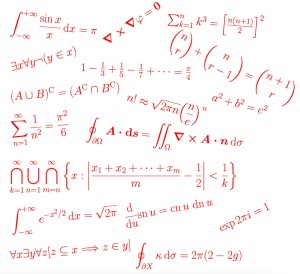 ∫_{-∞}^{+∞} sin x / x dx = π
∇ × ∇φ = 0
∑_{k=1}^{n} k³ = [n(n+1)/2]²
∃x∀y¬(y ∈ x)
1 − 1/3 + 1/5 − 1/7 + ⋯ = π/4
(n r) + (n r−1) = (n+1 r)
(A ∪ B)^C = (A^C ∩ B^C)
n! ≈ √(2πn) (n/e)^n
a² + b² = c²
∑_{n=1}^{∞} 1/n² = π²/6
∮_{∂Ω} A · ds = ∬_Ω ∇ × A · n dσ
⋂_{k=1}^{∞} ⋃_{n=1}^{∞} ⋂_{m=n}^{∞} {x : |(x₁ + x₂ + ⋯ + x_m)/m − 1/2| < 1/k}
∫_{-∞}^{+∞} e^{−x²/2} dx = √(2π)
d/du sn u = cn u dn u
exp 2πi = 1
∀x∃y∀z[z ⊆ x ⟹ z ∈ y]
∮_{∂X} κ dσ = 2π(2 − 2g)